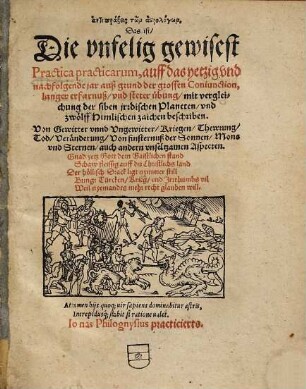 Das ist/
Die vnfelig gewisest
Practica practicarum, auff das yetzig vnd
nachfolgende jar auß grund der grossen Coniunction,
langer erfarnuß/ vnd steter übung/ mit vergleichung
der siben jrdischen Planeten/ vnd
zwölff Himlischen zaichen beschriben.
Von Gewitter vnnd Vngewitter/ Kriegen/ Thewrung/
Tod/ Veränderung/ Von finsternuß der Sonnen/ Mons
vnd Sternen/ auch andern vnsaltzamen Aspecten.
Gnad yetz Gott dem Gaistlichen stand
Schaw fleissig auff du Christlichs land
Der höllisch Stuck ligt nymmer still
Bringt Türcken/ Krieg/ vnd Irrthumbs vil
Weil niemandts mehr recht glauben will.
Attamen hijs quoq; vir sapiens dominabitur astris,
Intrepidusq; stabit si ratione valet.
Jo nas Philognysius practicierts.